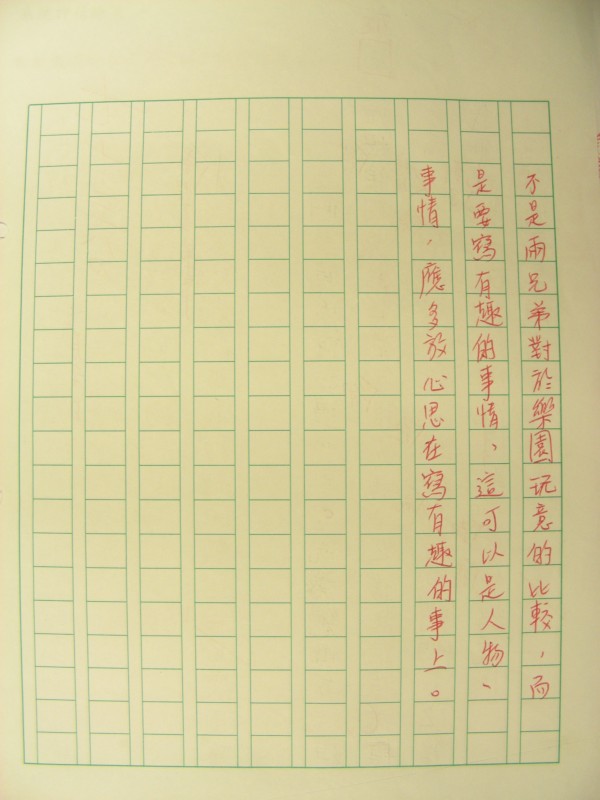 不是兩兄弟對於樂園玩意的比較，而
是要寫有趣的事情、這可以是人物、
事情，應多放心思在寫有趣的事上。